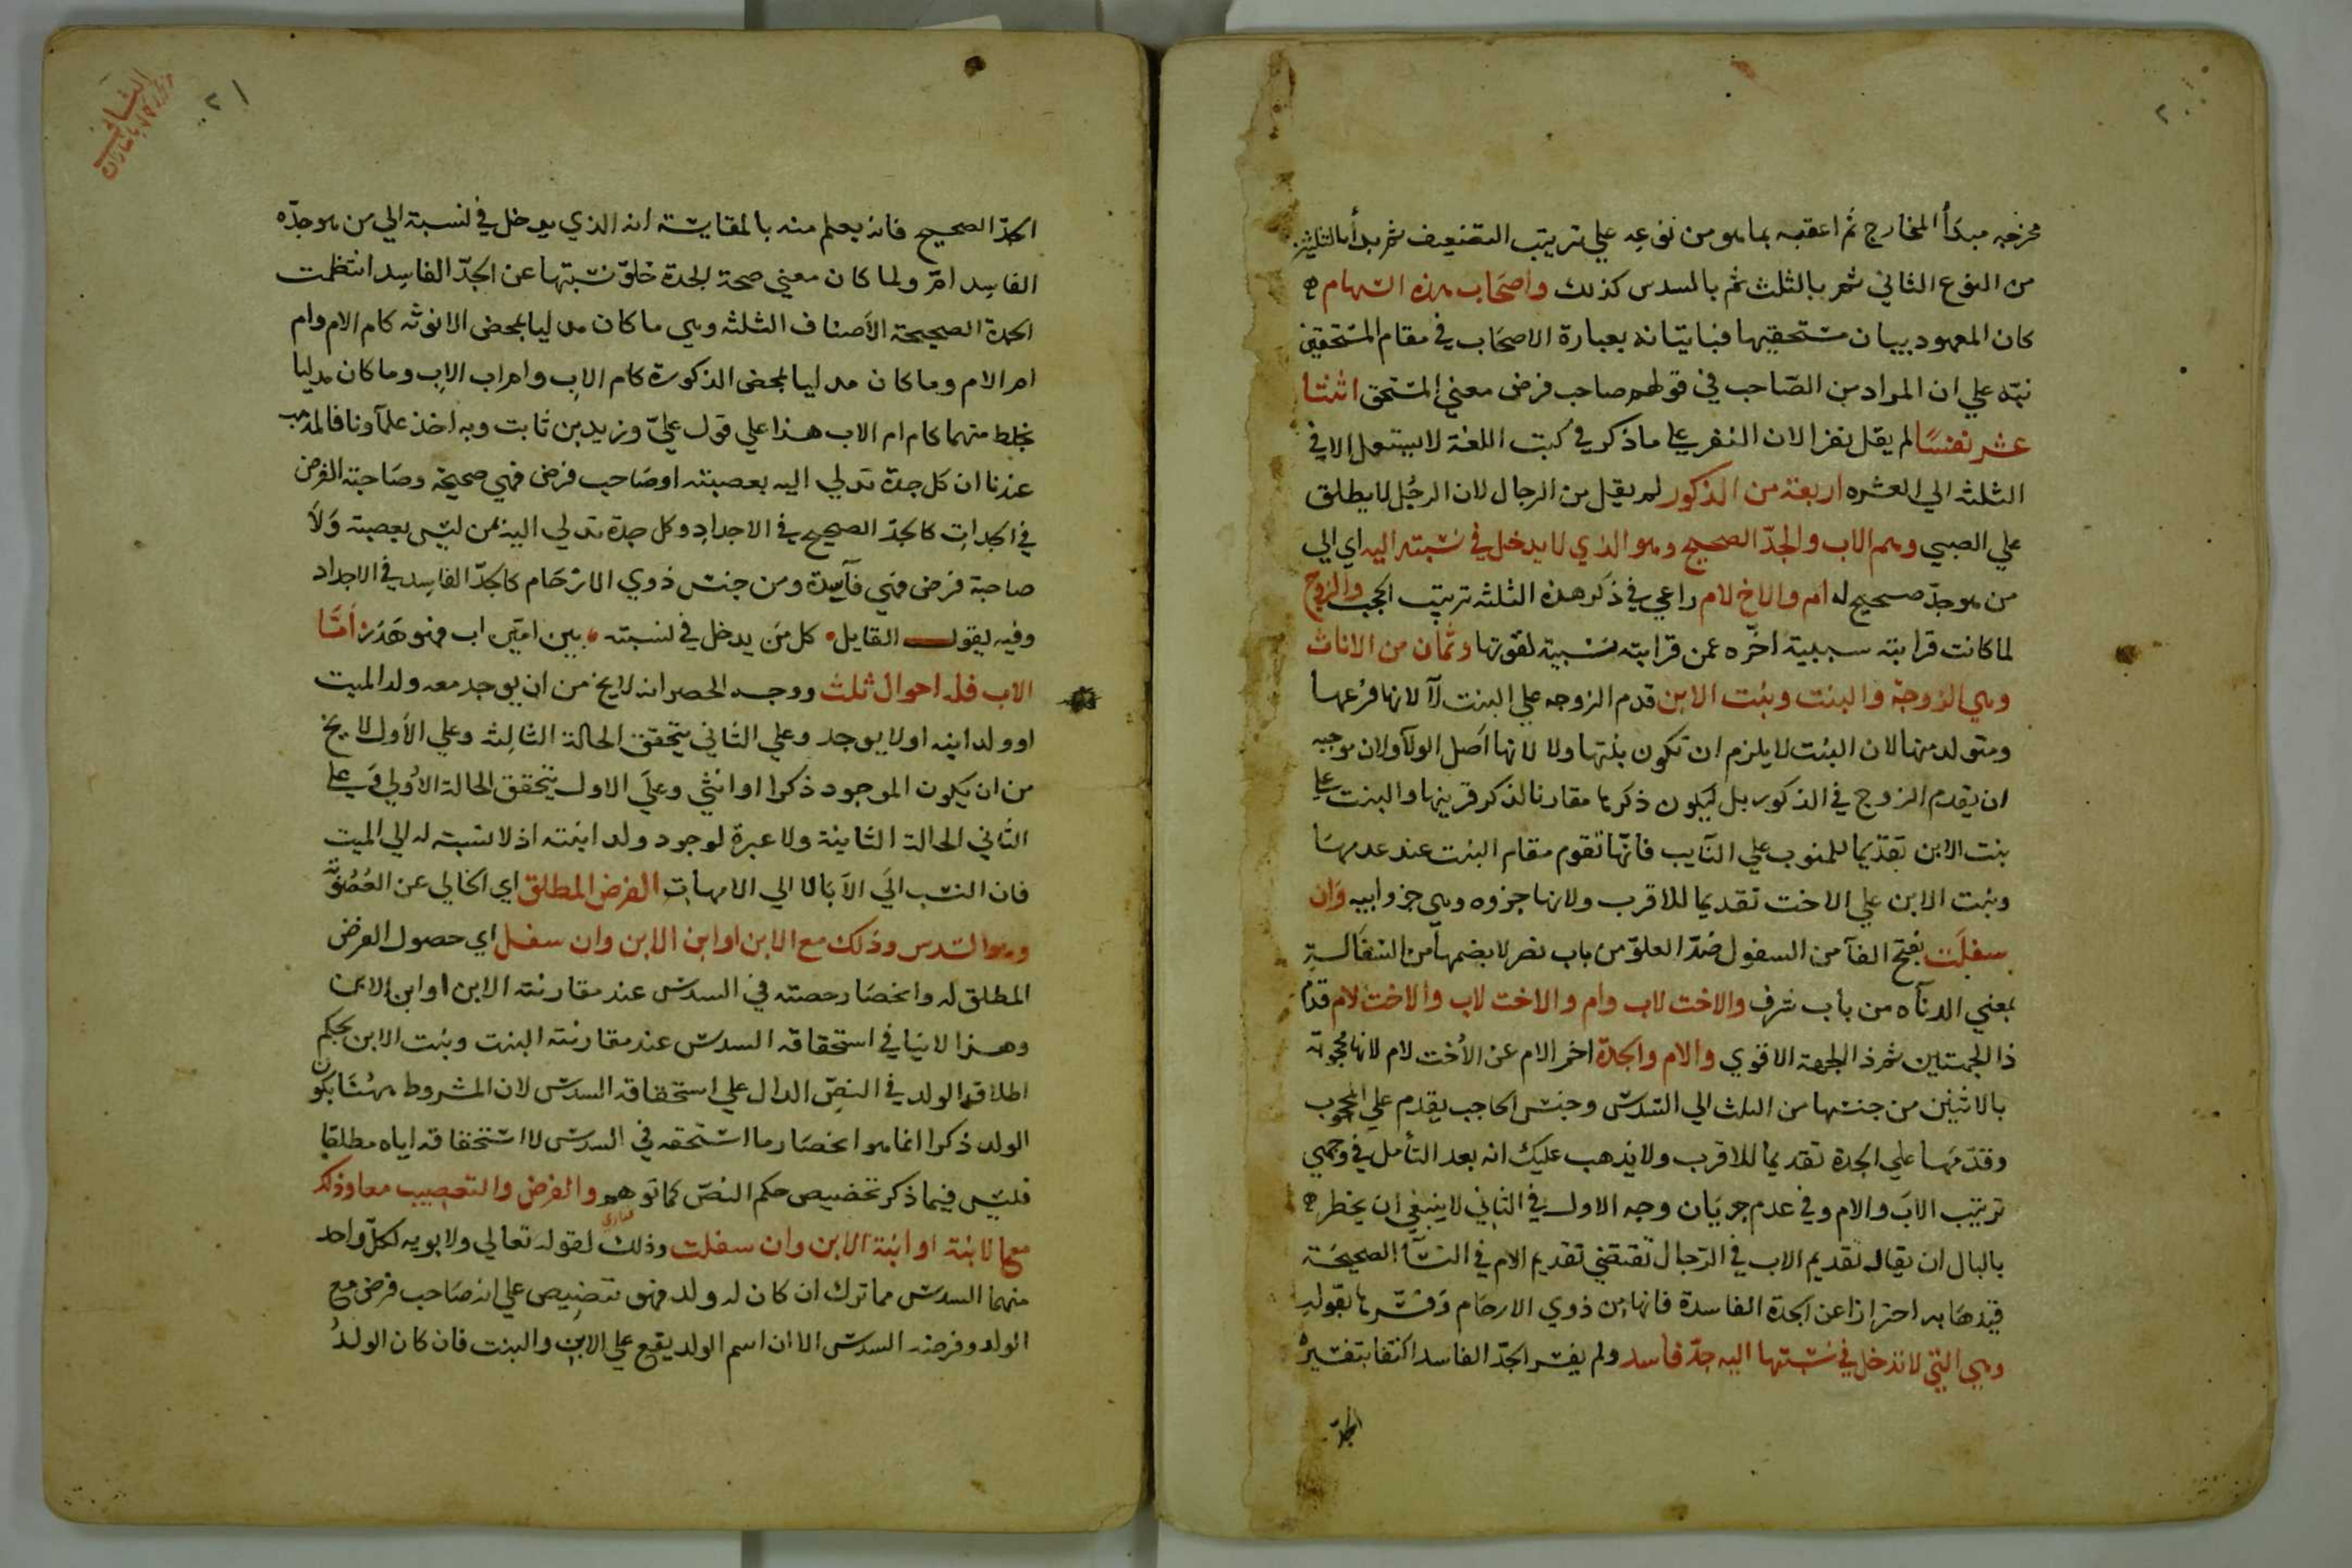 ٢٠
مخرجه مبدأ المخارج ثم اعقبه بما هو من نوعه علي ترتيب التضعيف ثم بدأ بالثلثين
من النوع الثاني ثم بالثلث ثم بالسدس كذلك واصحاب هذه السهام
كان المعهود بيان مستحقيها فبايتانه بعبارة الاصحاب في مقام المستحقين
نبه علي ان المراد من الصاحب في قولهم صاحب فرض معني المستحق اثنتا
عشر نفسا لم يقل نفرا لان النفر علي ما ذكر في كتب اللغة لا يستعمل الا في
الثلثه الي العشره اربعة من الذكور لم يقل من الرجال لان الرجل لا يطلق
علي الصبي وهم الاب والجد الصحيح وهو الذي لا يدخل في نسبته اليه اي الي
من هو جد صحيح له ام والاخ لام راعي في ذكر هذه الثلثه ترتيب الحجب والزوج
لما كانت قرابته سببية اخره عمن قرابته نسبية لقوتها وثمان من الاناث
وهي الزوجة والبنت وبنت الابن قدم الزوجه علي البنت لا لانها فرعها
ومتولد منها لان البنت لا يلزم ان تكون بنتها ولا لانها اصل الولآ ولان موجبه
ان يقدم الزوج في الذكور بل ليكون ذكرها مقارنا لذكر قرينها والبنت علي
بنت الابن تقديما للمنوب علي النايب فانها تقوم مقام البنت عند عدمها
وبنت الابن علي الاخت تقديما للاقرب ولانها جزوه وهي جزو ابيه وان
سفلت بفتح الفآ من السفول ضد العلو من باب نصر لا بضمها من السفالة
بمعني الدنآه من باب شرف والاخت لاب وام والاخت لاب والاخت لام قدم
ذا الجهتين ثم ذا الجهة الاقوي والام والجدة اخر الام عن الاخت لام لانها محجوبة
بالاثنين من جنسها من الثلث الي السدس وجنس الحاجب يقدم علي المحجوب
وقدمها علي الجدة تقديما للاقرب ولا يذهب عليك انه بعد التأمل في وجهي
ترتيب الاب والام وفي عدم جريان وجه الاول في الثاني لا ينبغي ان يخطر
بالبال ان يقال تقديم الاب في الرجال تقتضي تقديم الام في النسآ الصحيحة
قيدها به احترازا عن الجدة الفاسدة فانها من ذوي الارحام وفسرها بقوله
وهي التي لا تدخل في نسبتها اليه جد فاسد ولم يفسر الجد الفاسد اكتفا بتفسيره
الجد
٢١
الجد الصحيح فانه يعلم منه بالمقايسة انه الذي يدخل في نسبة الي من هو جده
الفاسد ام ولما كان معني صحة الجدة خلو نسبتها عن الجد الفاسد انتظمت
الجدة الصحيحة الاصناف الثلثه وهي ما كان مدليا بمحض الانوثه كام الام وام
ام الام وما كان مدليا بمحض الذكورة كام الاب وام اب الاب وما كان مدليا
بخلط منهما كام ام الاب هذا علي قول علي وزيد بن ثابت وبه اخذ علمآونا فالمذهب
عندنا ان كل جدة تدلي اليه بعصبته او صاحب فرض فهي صحيحة وصاحبة الفرض
في الجدات كالجد الصحيح في الاجداد وكل جدة تدلي اليه بمن ليس بعصبته ولا
صاحبة فرض فهي فآسدة ومن جنس ذوي الارحام كالجد الفاسد في الاجداد
وفيه يقول القايل كل من يدخل في نسبته بين امين اب فهو هدر اما
الاب فله احوال ثلث ووجه الحصر انه لا يخ من ان يوجد معه ولد الميت
او ولد ابنه او لا يوجد وعلي الثاني يتحقق الحالة الثالثة وعلي الاول لا يخ
من ان يكون الموجود ذكرا او انثي وعلي الاول يتحقق الحالة الاولي وعلي
الثاني الحالة الثانية ولا عبرة لوجود ولد ابنته اذ لا نسبته له الي الميت
فان النسب الي الآبا لا الي الامهات الفرض المطلق اي الخالي عن العصوبة
وهو السدس وذلك مع الابن او ابن الابن وان سفل اي حصول الفرض
المطلق له وانحصار حصته في السدس عند مقارنته الابن او ابن الابن
وهذا لا ينافي استحقاقه السدس عند مقارنته البنت وبنت الابن بحكم
اطلاق الولد في النص الدال علي استحقاقه السدس لان المشروط ههنا بكون
الولد ذكرا انما هو انحصار ما استحقه في السدس لا استحقاقه اياه مطلقا
فليس فيما ذكر تخصيص حكم النص كما توهم والفرض والتعصيب معا وذلك
مع الابنة او ابنة الابن وان سفلت وذلك لقوله تعالي ولابويه لكل واحد
منهما السدس مما ترك ان كان له ولد فهو تنصيص علي انه صاحب فرض مع
الولد وفرضه السدس الا ان اسم الولد يقع علي الابن والبنت فان كان الولد